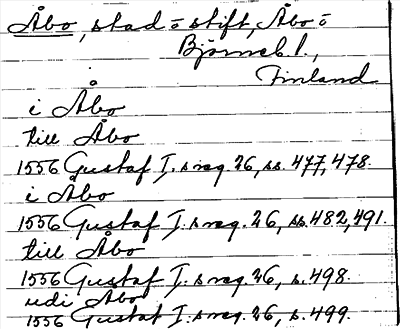 Åbo, stad o stift, Åbo o
Björneb. l.,
Finland
i Åbo
till Åbo
1556 Gustaf I:s reg. 26, ss. 477, 478.
i Åbo
1556 Gustaf I:s reg. 26, ss. 482, 491.
till Åbo
1556 Gustaf I:s reg. 26, s. 498.
udi Åbo
1556 Gustaf I:s reg. 26, s. 499.